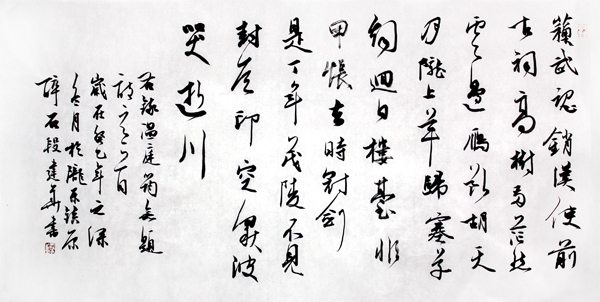 蘇武魂銷漢使前
古祠高樹兩茫然
雲邊雁斷胡天
月隴上羊歸塞草
煙迴日樓臺非
甲帳去時冠劍
是丁年茂陵不見
封侯印空秋波
哭逝川
右錄溫庭筠無題
詩一首
歲在癸巳年之深
冬月於隴東鎮原
醉石段建華書